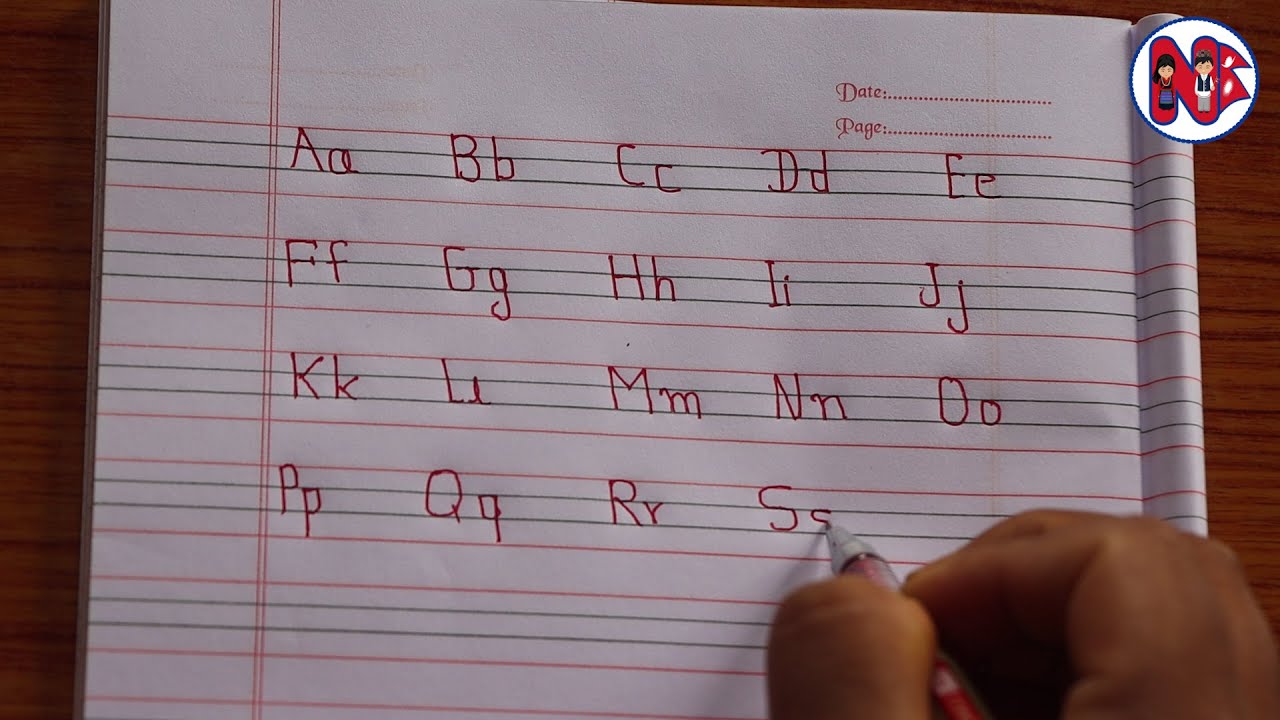 Date:
Page:
Aa Bb Cc Dd Ee
Ff Gg Hh Ii Jj
Kk Ll Mm Nn Oo
Pp Qq Rr Ss